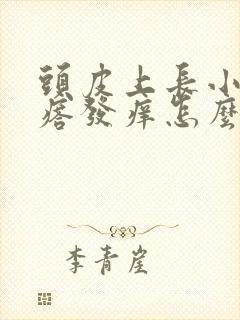 頭皮上長小
痞發痒怎麼
李青崖